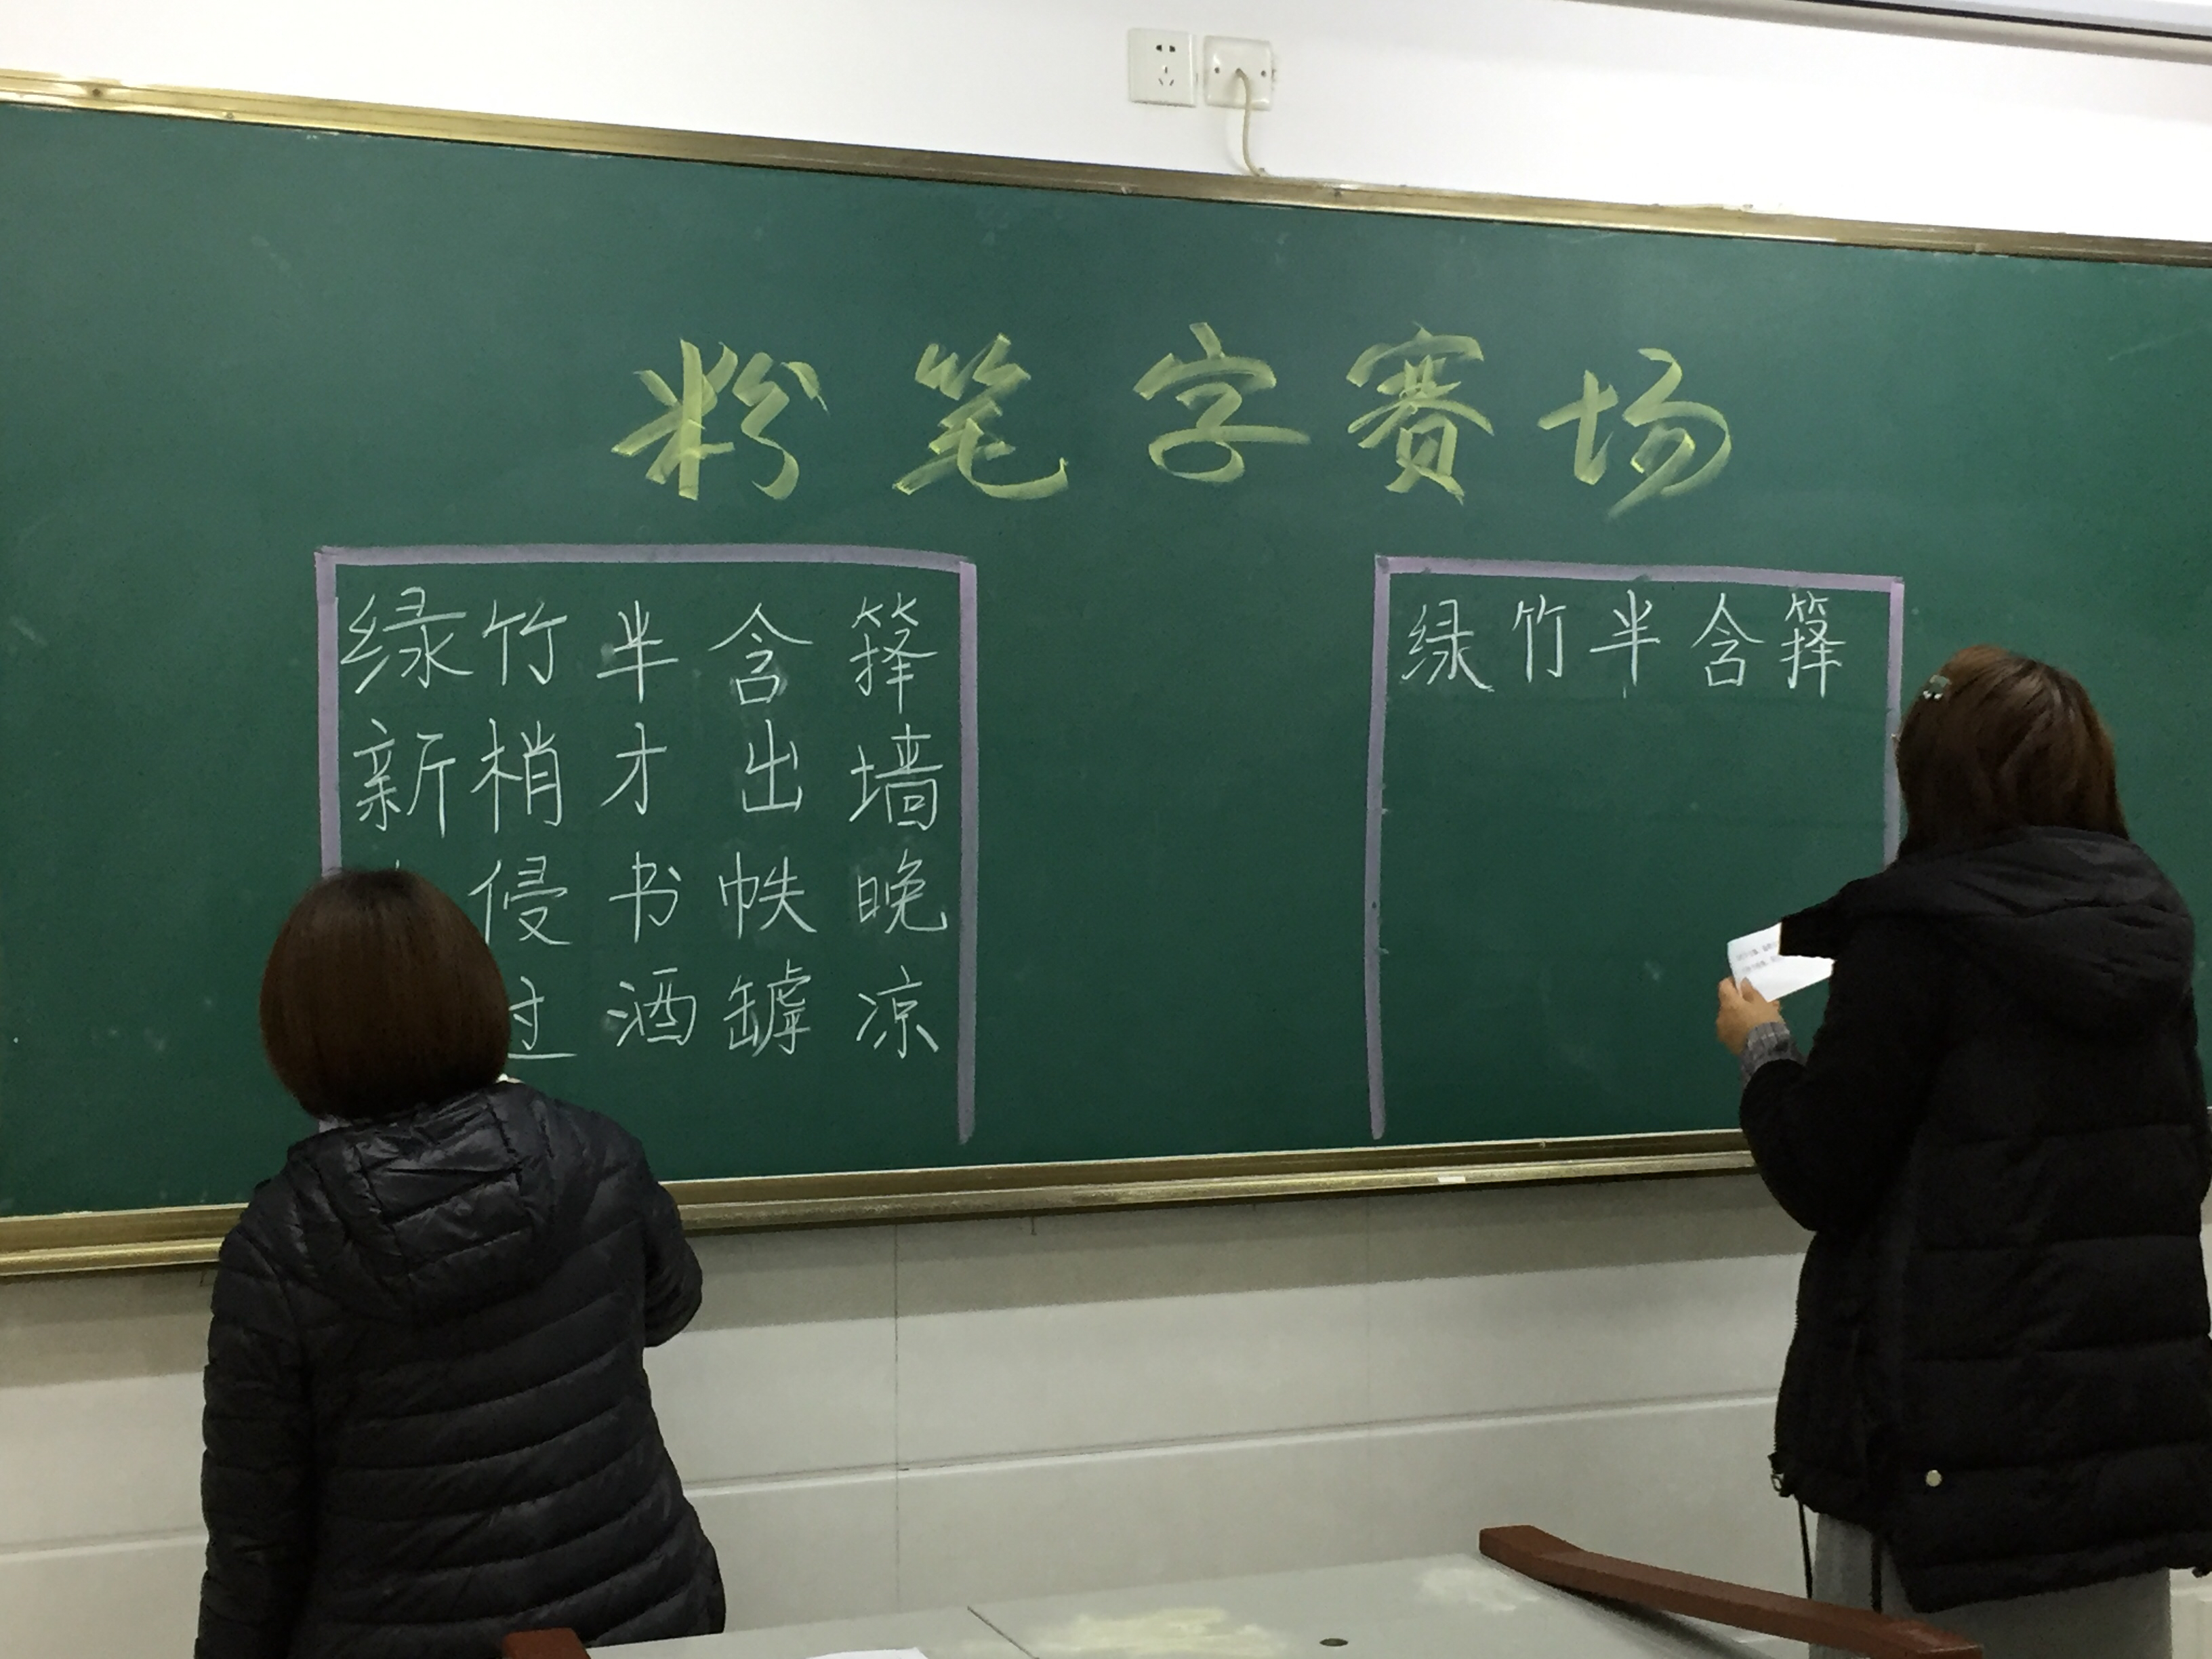 粉笔字赛场
绿竹半含箨
新梢才出墙
侵书帙晚
过酒罅凉
绿竹半含箨